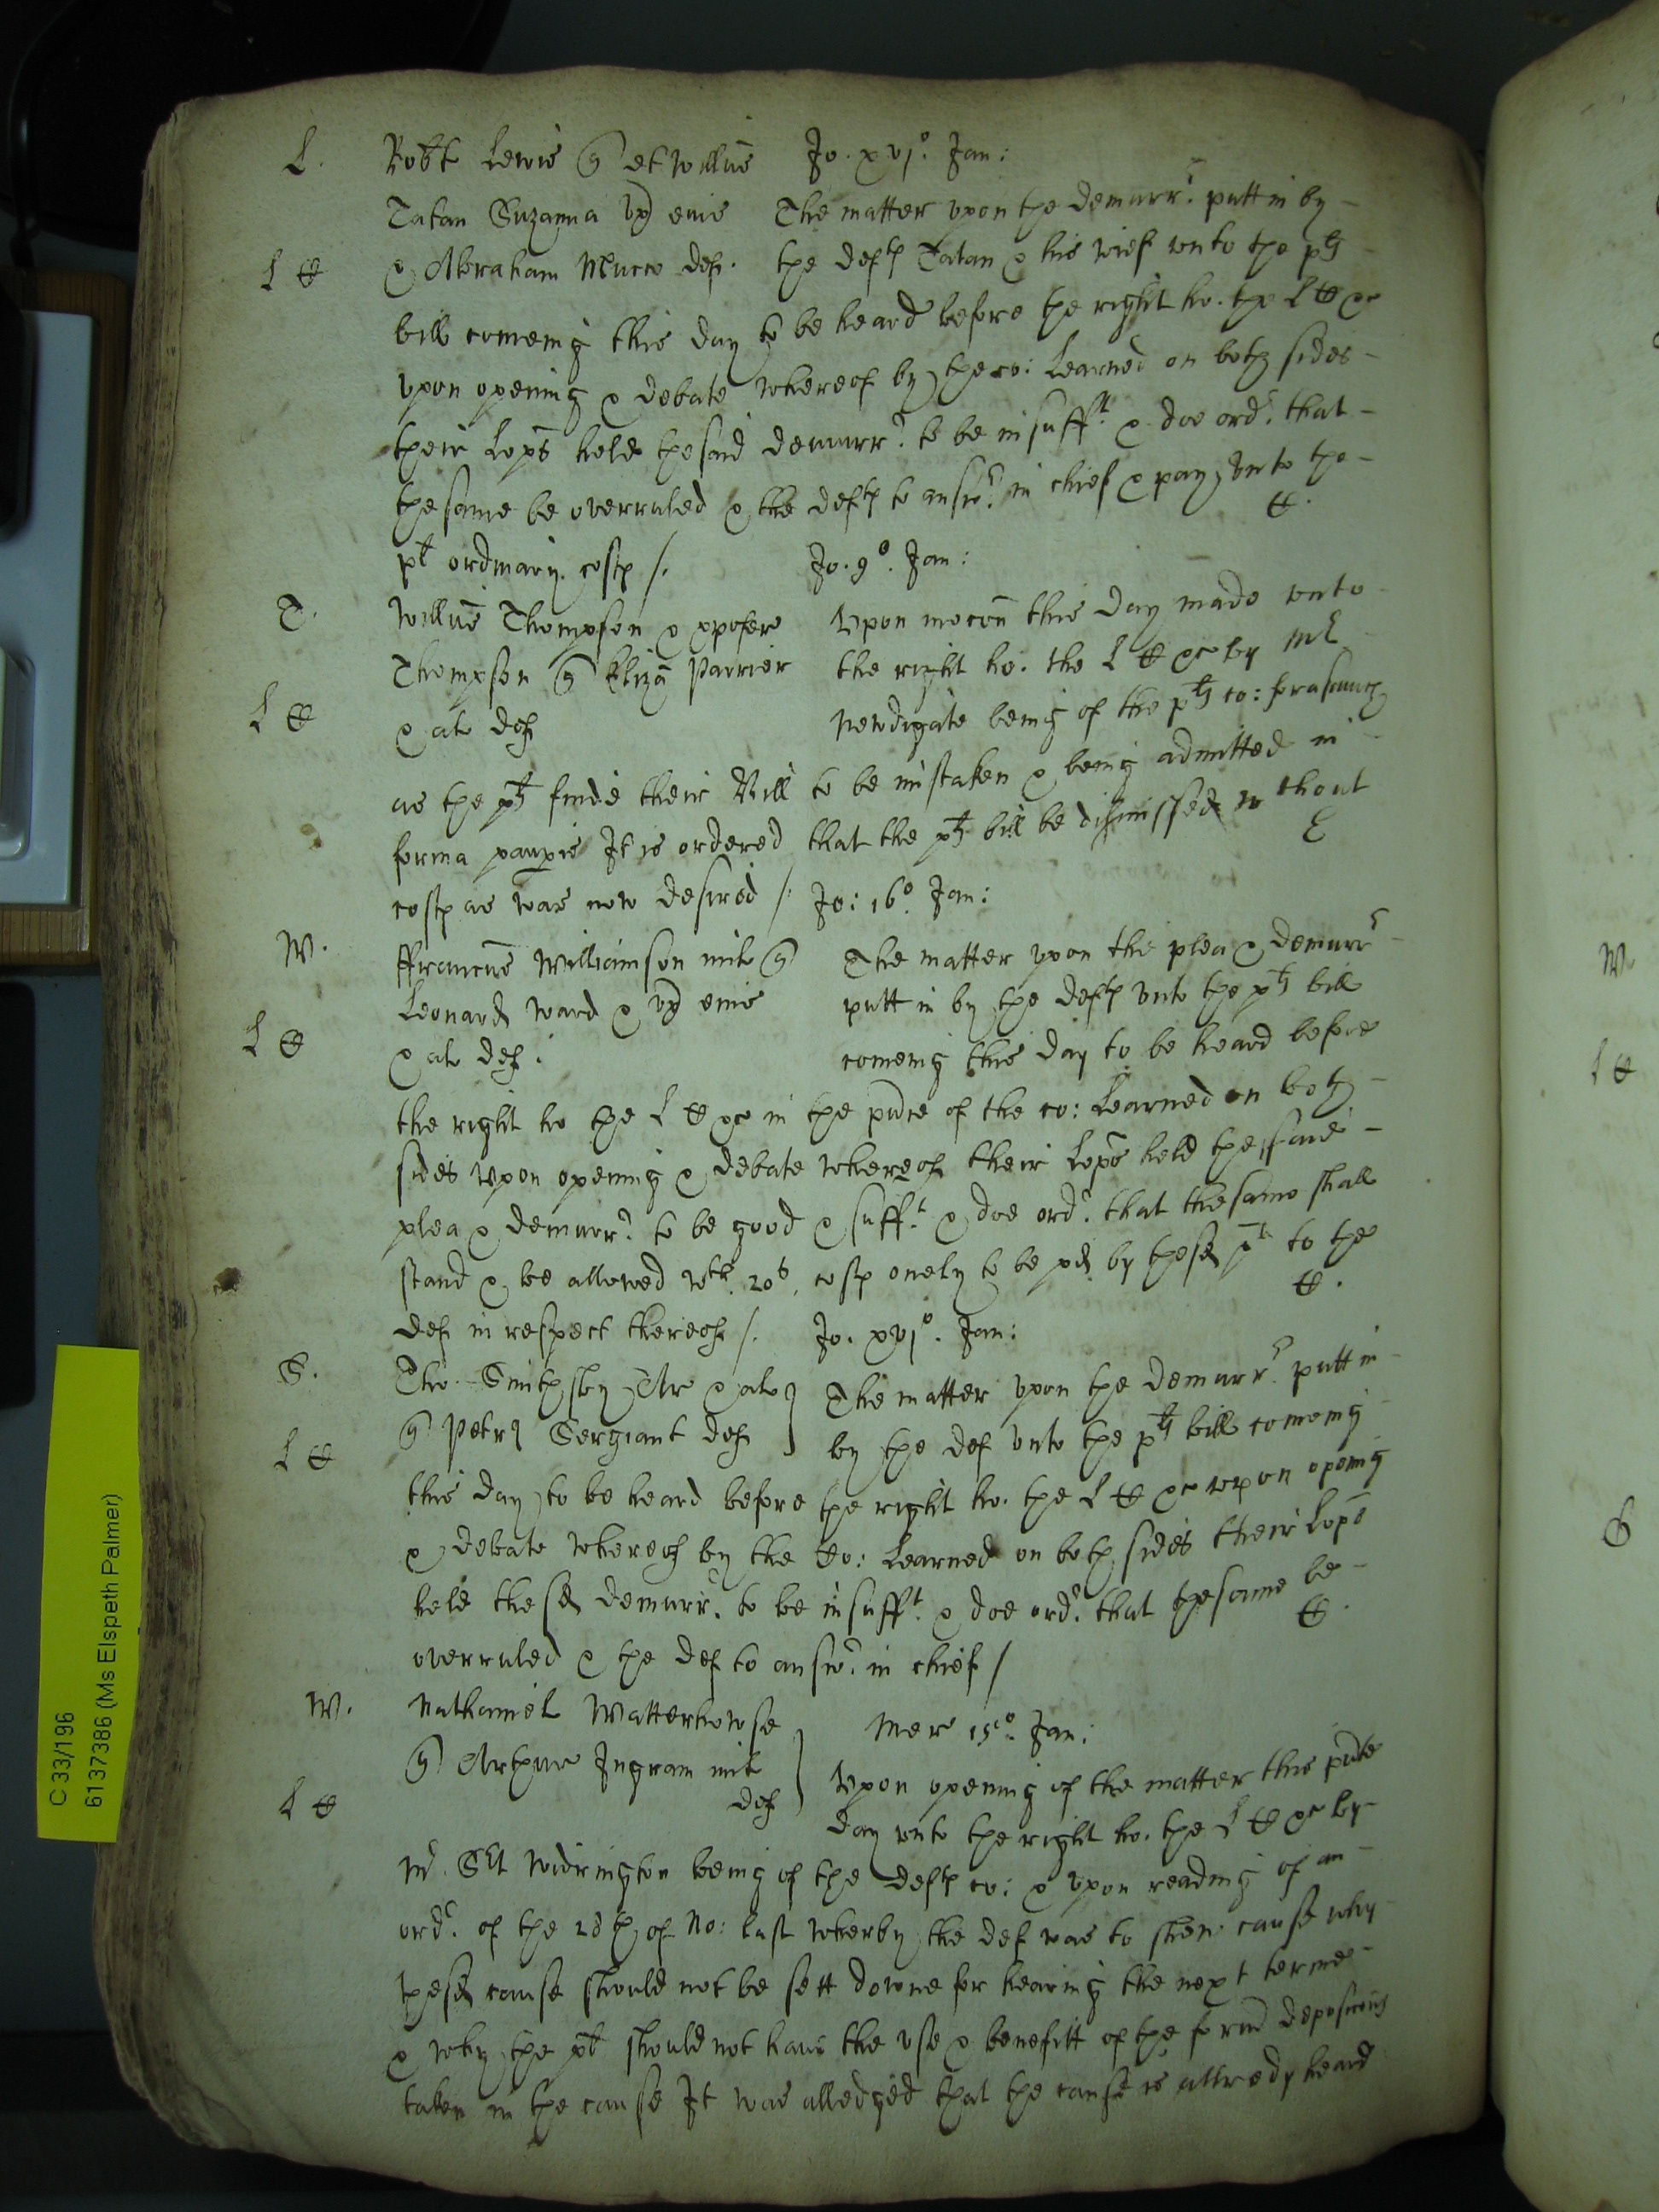 L. Robt Lewis q et Willus Jo. xvjo. Jan:
Tatan Suzanna ux eius The matter upon the demurr: putt in by
L C & Abraham Mucce def. the defts Tatan & his wief unto the plts
bill comeing this day to be heard before the right ho. the L C &c
upon opening & debate whereof by the co: Learned on both sides
their Lopps held the said demurr: to be insufft. & doe ord. that
the same be overruled & the defts to answ: in chief & pay unto the
plt ordinary costs /. C.
Jo. 9o. Jan:
T. Willus Thompson & xpofer Upon mocon this day made unto
Thompson q Eliza Parrier the right ho. the L C &c by Mr
L C & al def Newdigate being of the plts co: forasmuch
as the plts finde their Bill to be mistaken & being admitted in
forma paupis It is ordered that the plts bill be dismissed without
costs as was now desired /. Jo: 16o. Jan:
W. ffrancus Williamson mil q The matter upon the plea & demurr
Leonard Ward & ux eius putt in by the defts unto the plts bill
L C & al def. comeing this day to be heard before
the right ho the L C &c in the pnce of the co: Learned on both
sides upon opening & debate whereof their Lopps held the said
plea & demurr: to be good & sufft. & doe ord. that the same shall
stand & be allowed wth. 20s. costs onely to be pd by the sd plt to the
def in respect thereof /. C.
Jo. xvjo. Jan:
S. Tho. Smithsby Ar & al q The matter upon the demurr: putt in
q Petrus Sergiant def by the def unto the plts bill comeing
L C
this day to be heard before the right ho. the L C &c upon opening
& debate whereof by the Co: Learned on both sides their Lopps
held the sd demurr. to be insufft. & doe ord. that the same be
overruled & the def to answ: in chief / C.
W. Nathaniel Watterhowse Mer 15o. Jan:
q Arthur Ingram mil Upon opening of the matter this pnte
L C def day unto the right ho. the L C &c by
Mr. Sert Widrington being of the defts co: & upon reading of an
ord. of the 28th of No: last wherby the def was to shew cause why
the sd cause should not be sett downe for hearing the next terme
& why the plt should not have the use & benefitt of the formr deposicons
taken in the cause It was alledged that the cause is allredy heard
C 33/196
6137386 (Ms Elspeth Palmer)
W
L C
S